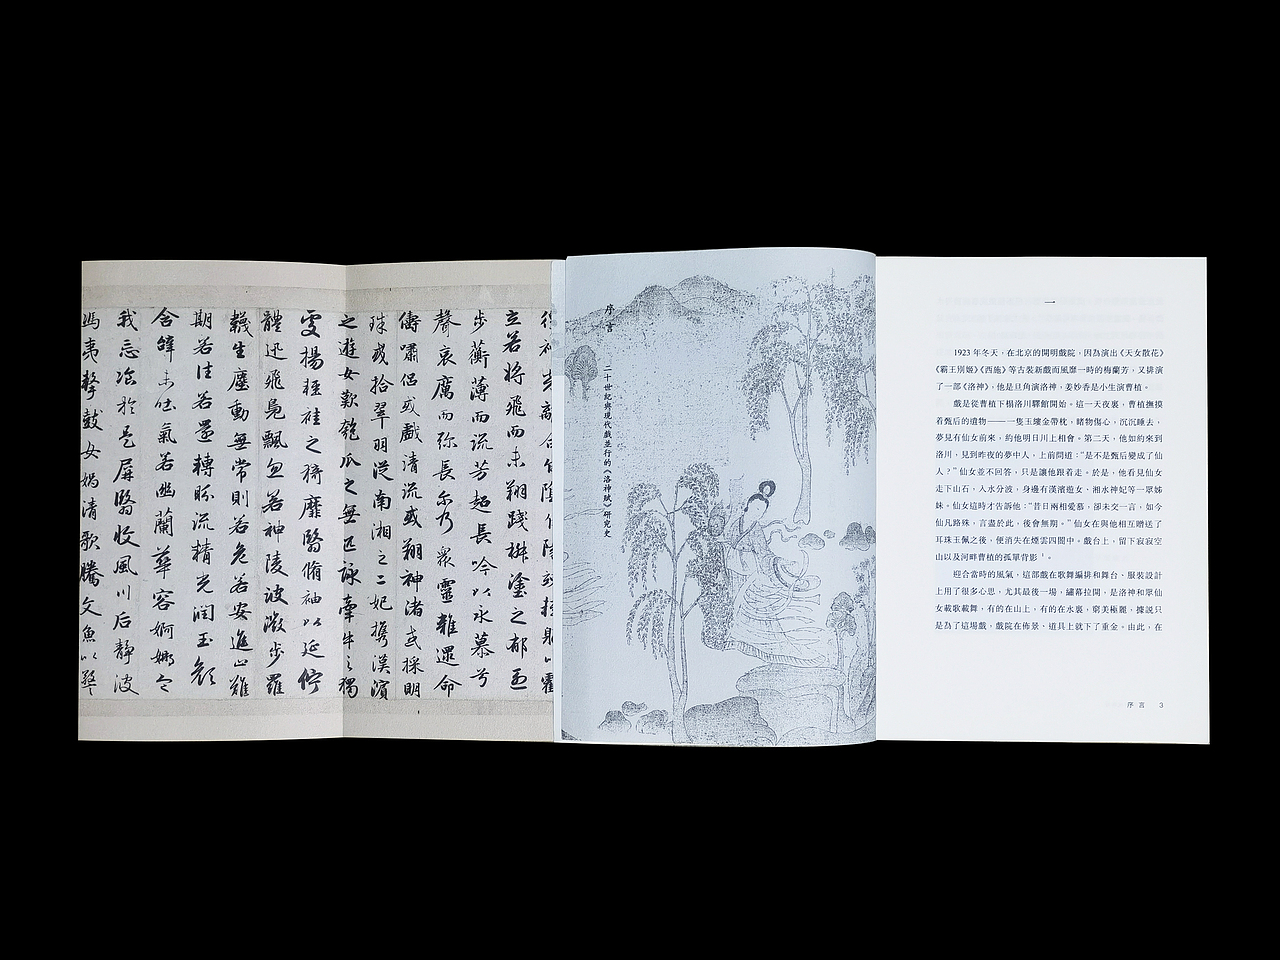 立若將飛而未翔踐椒塗之郁烈
步蘅薄而流芳超長吟以永慕兮
聲哀厲而彌長爾乃衆靈雜遝命
儔嘯侶或戲清流或翔神渚或採明
珠或拾翠羽從南湘之二妃攜漢濱
之遊女歎匏瓜之無匹詠牽牛之獨
處揚輕袿之猗靡翳脩袖以延佇
體迅飛鳧飄忽若神陵波微步羅
韈生塵動無常則若危若安進止難
期若往若還轉眄流精光潤玉顏
含辭未吐氣若幽蘭華容婀娜令
我忘飡於是屏翳收風川后靜波
馮夷擊鼓女媧清歌騰文魚以警
序言 二十世紀與現代戲並行的《洛神賦》研究史
一
1923 年冬天，在北京的開明戲院，因為演出《天女散花》
《霸王別姬》《西施》等古裝新戲而風靡一時的梅蘭芳，又排演
了一部《洛神》，他是旦角演洛神，姜妙香是小生演曹植。
戲是從曹植下榻洛川驛館開始。這一天夜裏，曹植撫摸
着甄后的遺物——一隻玉縷金帶枕，睹物傷心，沉沉睡去，
夢見有仙女前來，約他明日川上相會。第二天，他如約來到
洛川，見到昨夜的夢中人，上前問道：“是不是甄后變成了仙
人？”仙女並不回答，只是讓他跟着走。於是，他看見仙女
走下山石，入水分波，身邊有漢濱遊女、湘水神妃等一眾姊
妹。仙女這時才告訴他：“昔日兩相愛慕，卻未交一言，如今
仙凡路殊，言盡於此，後會無期。”仙女在與他相互贈送了
耳珠玉佩之後，便消失在煙雲四閤中。戲台上，留下寂寂空
山以及河畔曹植的孤單背影1。
迎合當時的風氣，這部戲在歌舞編排和舞台、服裝設計
上用了很多心思，尤其最後一場，繡幕拉開，是洛神和眾仙
女載歌載舞，有的在山上，有的在水裏，窮美極麗，據説只
是為了這場戲，戲院在佈景、道具上就下了重金。由此，在
序 言 3